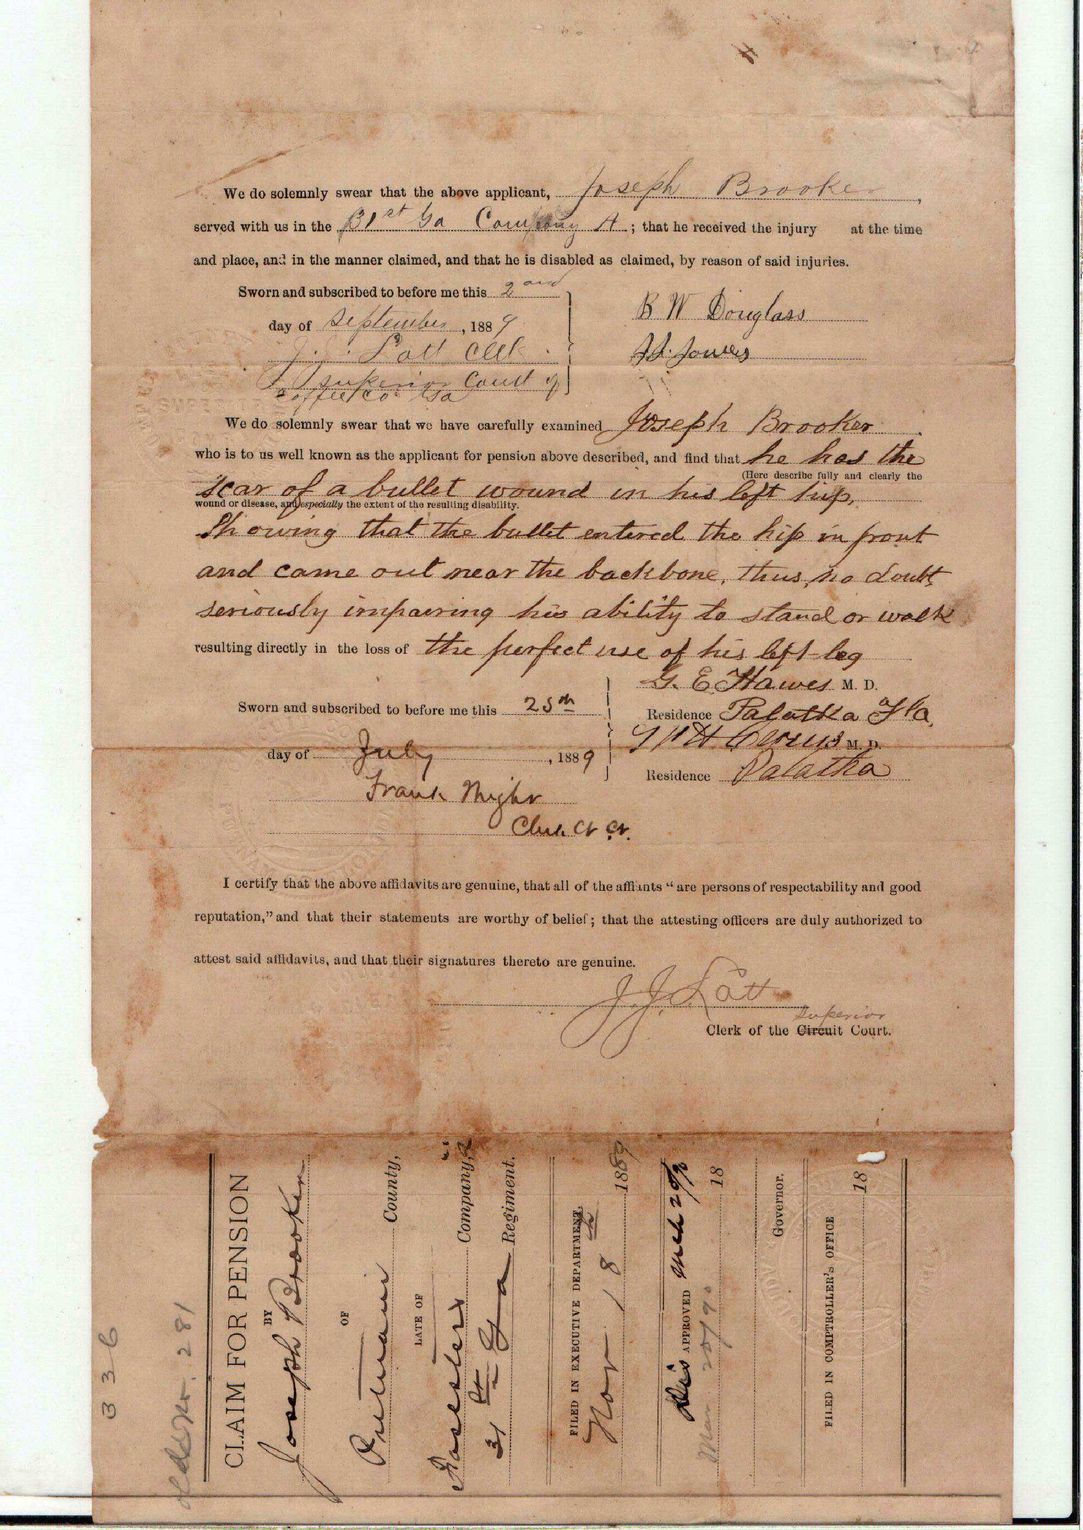 We do solemnly swear that the above applicant, Joseph Brooker,
served with us in the 31st Ga Company A; that he received the injury at the time
and place, and in the manner claimed, and that he is disabled as claimed, by reason of said injuries.
Sworn and subscribed to before me this 2nd
day of September, 1889
J. J. Lott Clk
Superior Court of
Coffee Co Ga
B W Douglass
We do solemnly swear that we have carefully examined Joseph Brooker
who is to us well known as the applicant for pension above described, and find that he has the
(Here describe fully and clearly the
scar of a bullet wound in his left hip,
wound or disease, and especially the extent of the resulting disability.
Showing that the bullet entered the hip in front
and came out near the backbone, thus, no doubt,
seriously impairing his ability to stand or walk
resulting directly in the loss of the perfect use of his left leg
G. E. Hawes M. D.
Residence Palatka Fla
M. D.
Residence Palatka
Sworn and subscribed to before me this 25th
day of July, 1889
Frank
I certify that the above affidavits are genuine, that all of the affiants "are persons of respectability and good
reputation," and that their statements are worthy of belief; that the attesting officers are duly authorized to
attest said affidavits, and that their signatures thereto are genuine.
J. J. Lott
Superior
Clerk of the Circuit Court.
336
old No. 281
CLAIM FOR PENSION
BY
Joseph Brooker
OF
Putnam County,
LATE OF
Company,
31st Ga Regiment.
FILED IN EXECUTIVE DEPARTMENT,
Nov 18th 1889
Dis APPROVED Mch 20/90 18
Mar 20/90
Governor.
FILED IN COMPTROLLER'S OFFICE
18